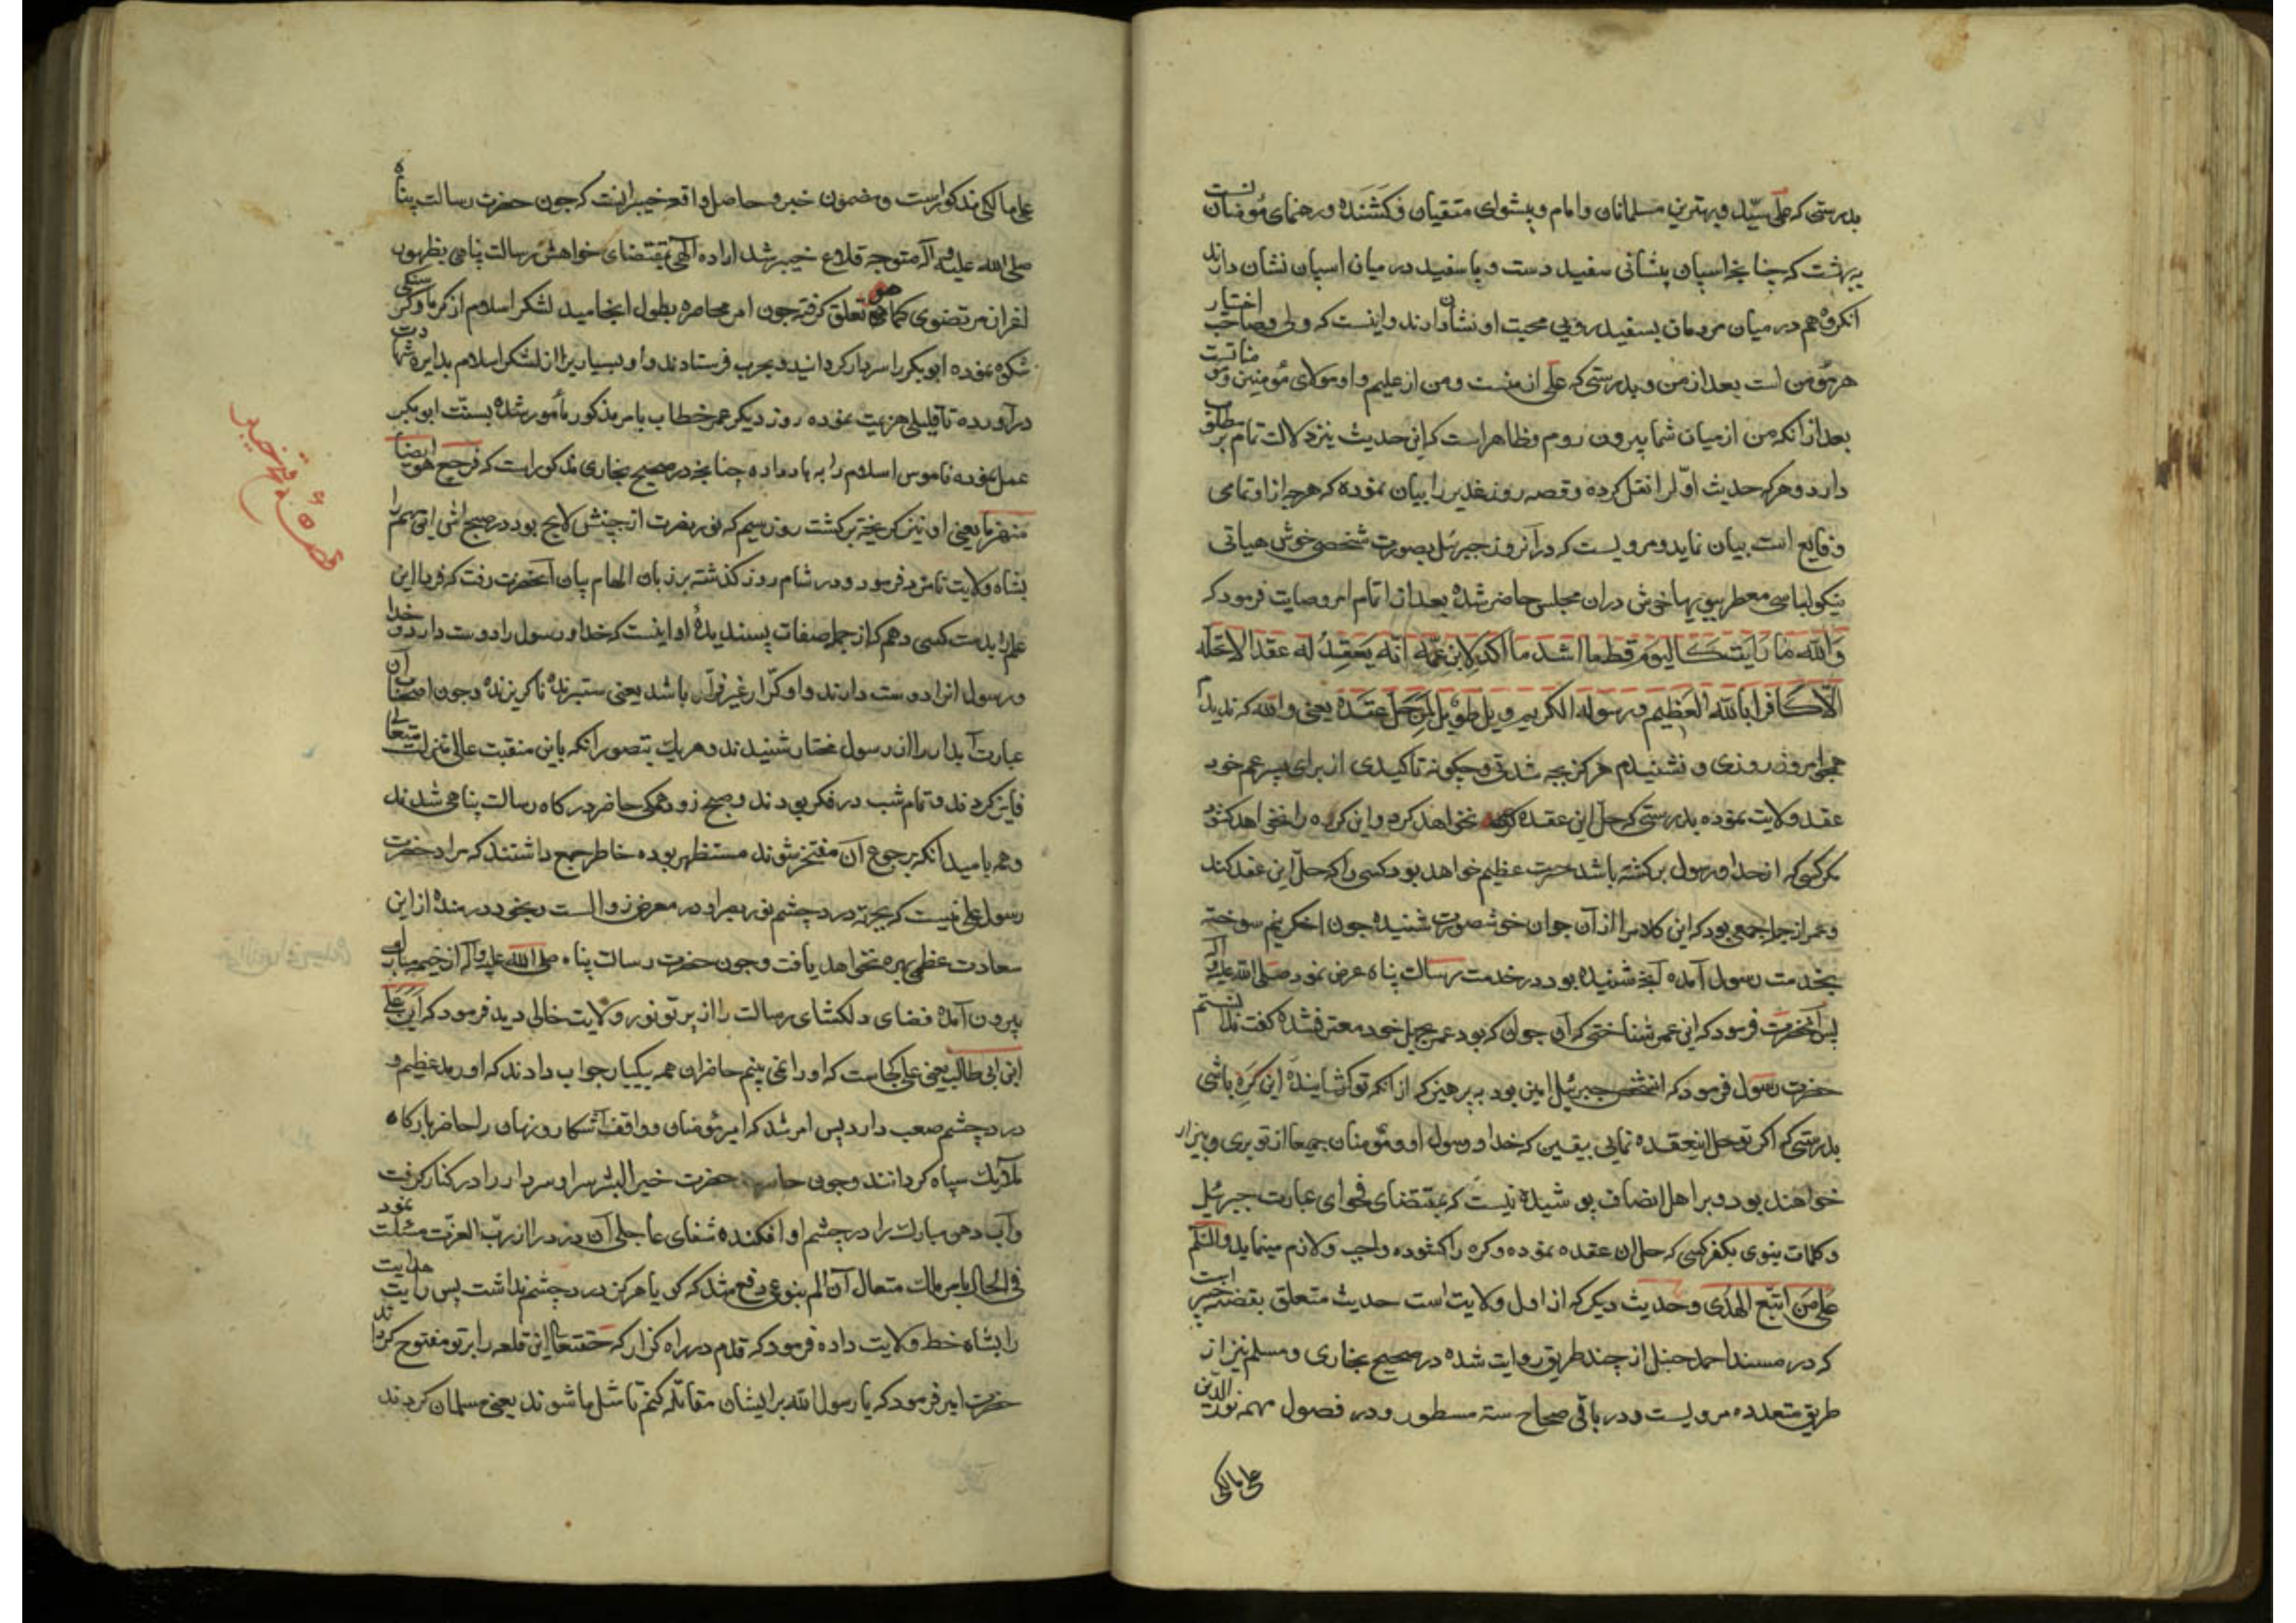 بدرستی که علی سیّد و بهترین مسلمانان و امام و پیشوای متقیان و کشنده و رهنمای مؤمنانست
ببهشت که چنانچه اسپان پیشانی سفید دست و پا سفید در میان اسپان نشان دارند
انکروه هم در میان مردمان بسفید رویی محبت او نشان دارند و اینست که ولی و صاحب اختیار
هر مؤمن است بعد از من و بدرستی که علی از منست و من از علیم و او مولای مؤمنین و مؤمناتست
بعد از انکه من از میان شما بیرون روم و ظاهر است که این حدیث نیز دلالت تمام بر مطلوب
دارد و هر که حدیث اوّل را نقل کرده و قصه روز غدیر را بیان نموده که هرچه از او تمامی
وقایع است بیان نماید و مرویست که در آنروز جبرئیل بصورت شخصی خوش هیاتی
نیکو لباسی معطر ببویها خوش دران مجلس حاضر شده بعد از اتمام امر وصایت فرمود که
وَالله ما رایت کالیوم قط ما اشد ما اکد لابن عمّه انّه یعقد له عقدا لا یحله
الّا کافرا بالله العظیم و رسوله الکریم ویل طویل لمن حل عقده یعنی والله که ندیدم
همچو امروز روزی و نشنیدم هرکز بچه شدتی و چکونه تاکیدی از برای پسر عم خود
عقد ولایت نموده بدرستی که حل این عقده نخواهد کرد و این کره را نخواهد کشود
مکر کسی که از خدا و رسول برکشته باشد حسرت عظیم خواهد بود کسی را که حلّ این عقد کند
و عمر از جمله جمعی بود که این کلام را از آن جوان خوشصورت شنیده چون اخکر نیم سوخته
بخدمت رسول آمده آنچه شنیده بود در خدمت رسالت پناه عرض نمود صلی الله علیه و آله
پس آنحضرت فرمود که ای عمر شناختی که آن جوان که بود عمر بجهل خود معترف شده کفت ندانستم
حضرت رسول فرمود که انشخص جبرئیل امین بود بپرهیز که از انکه تو کشاینده این کره باشی
بدرستی که اکر تو حل اینعقده نمایی بیقین که خدا و رسول او و مؤمنان جمیعا از تو بری و بیزار
خواهند بود و بر اهل انصاف پوشیده نیست که بمقتضای فحوای عبارت جبرئیل
و کلمات نبوی بکفر کسی که حل ان عقده نموده و کره را کشوده واجب و لازم مینماید والسّلم
علی من اتبع الهدی و حدیث دیکر که از اول ولایت است حدیث متعلق بقضیه خیبر است
که در مسند احمد حنبل از چند طریق روایت شده در صحیح بخاری و مسلم نیز از
طریق متعدده مرویست و در باقی صحاح سته مسطور و در فصول مهمه نور الدین
علی مالکی
علی مالکی مذکور است و مضمون خبر و حاصل واقعه خیبر انست که چون حضرت رسالت پناه
صلی الله علیه و آله متوجه قلاع خیبر شد اراده الهی بمقتضای خواهش رسالت پناهی بظهور
مرتضوی کما هو تعلق کرفته چون امر محاصره بطول انجامید لشکر اسلام از کرما و کرسنکی
شکوه نموده ابوبکر را سردار کردانید و بحرب فرستادند و او بسیاری را از لشکر اسلام بدایره شهادت
درآورده تا قلیلی هزیمت نموده روز دیکر عمر خطاب بامر مذکور مأمور شده بسنّت ابوبکر
عمل نموده ناموس اسلام را به باد داده چنانچه در صحیح بخاری مذکور است که فرجع هو ایضا
منهزما یعنی او نیز کریخته برکشت روز سیم که نور نصرت از جبینش لایح بود در صبح اش این مهم را
بشاه ولایت نامزد فرمود و در شام روز کذشته بر زبان الهام بیان آنحضرت رفت که فردا این
علم را بدست کسی دهم که از جمله صفات پسندیدهٔ او اینست که خدا و رسول را دوست دارد و خدا
و رسول انرا دوست دارند و او کرّار غیر فرّار باشد یعنی ستیزنده ناکریزنده و چون اصحاب آن
عبارت آبدار را از رسول مختار شنیدند و هریک بتصور آنکه باین منقبت عالی منزلت
فایز کردند و تمام شب در فکر بودند و صبح زود همکی حاضر درکاه رسالت پناهی شدند
و همه بامید آنکه برجوع آن مفتخر شوند مستظهر بوده خاطر جمع داشتند که مراد حضرت
رسول علی نیست که بجهة درد چشم نور بصر او در معرض زوالست و بخودی از این
سعادت عظمی بهره نخواهد یافت و چون حضرت رسالت پناه صلی الله علیه و آله از خیمه مبارک
بیرون آمده فضای دلکشای رسالت را از پرتو نور ولایت خالی دید فرمود که این علی
ابن ابی طالب یعنی علی کجاست که او را نمی بینم حاضران همه بیکبار جواب دادند که او رمد عظیم و
درد چشم صعب دارد پس امر شد که امیر مؤمنان و واقف آشکار و نهان را حاضر بارکاه
ملایک سپاه کردانند و چون حضرت خیر البشر سر او سردار را در کنار کرفت
و آب دهن مبارک را در چشم او افکنده شفای عاجل آن درد را از ربّ العزّت مسئلت نمود
فی الحال بامر مالک متعال آن الم بنوعی دفع شد که کویا هرکز درد چشم نداشت پس رایت هدایت
را بشاه خطهٔ ولایت داده فرمود که قدم در راه کزار که حقتعالی این قلعه را بر تو مفتوح کرداند
حضرت امیر فرمود که یا رسول الله برایشان مقاتله کنم تا مثل ما شوند یعنی مسلمان کردند
خیبر